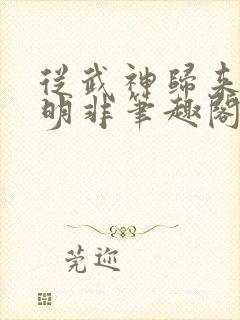 從武神歸來
明非筆趣閣
莞迩